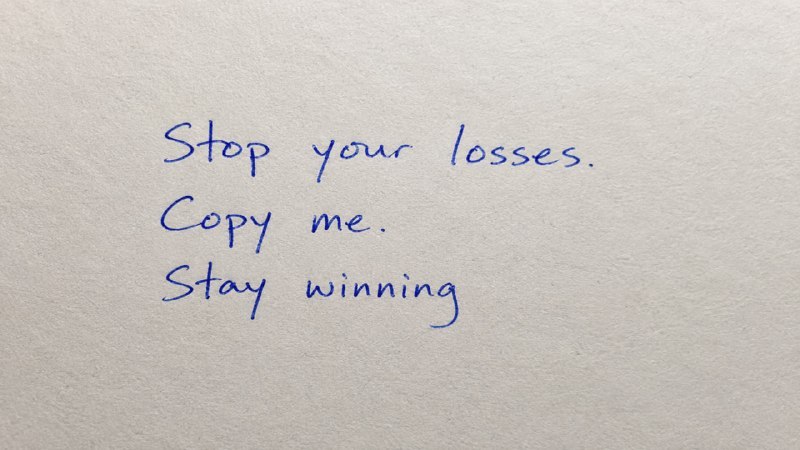 Stop your losses.
Copy me.
Stay winning